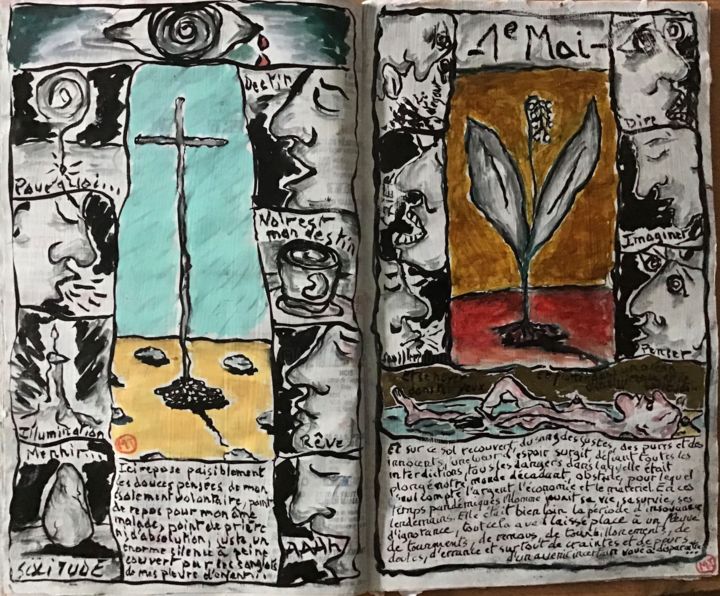 Pourquoi...
Destin
Noir est
mon destin
Illumination
Rêve
Menhir...
SOLITUDE
AAAh
Ici repose paisiblement
les douces pensées de mon
isolement volontaire, point
de repos pour mon âme
malade, point de prière
ni d'absolution, juste un
énorme silence à peine
couvert pour les sanglots
de mes pleurs d'enfant...
-1e Mai-
Dire
CRIER
Imaginer
Penser
Et sur ce sol recouvert, du sang des justes, des purs et des
innocents, une lueur d'espoir surgit défiant toutes les
interdictions, tous les dangers dans laquelle était
plongé notre monde décadant, obstable, pour lequel
seul compte l'argent, l'économie et le matériel. En ces
temps pandémiques l'homme jouait sa vie, sa survie, ses
lendemains. Elle était bien loin la période d'insouciance
d'ignorance, tout cela avait laissé place à un fleuve
de tourments, de remous, de
doutes, d'errance et surtout de craintes et de peurs
d'un avenir incertain voué à disparaître...